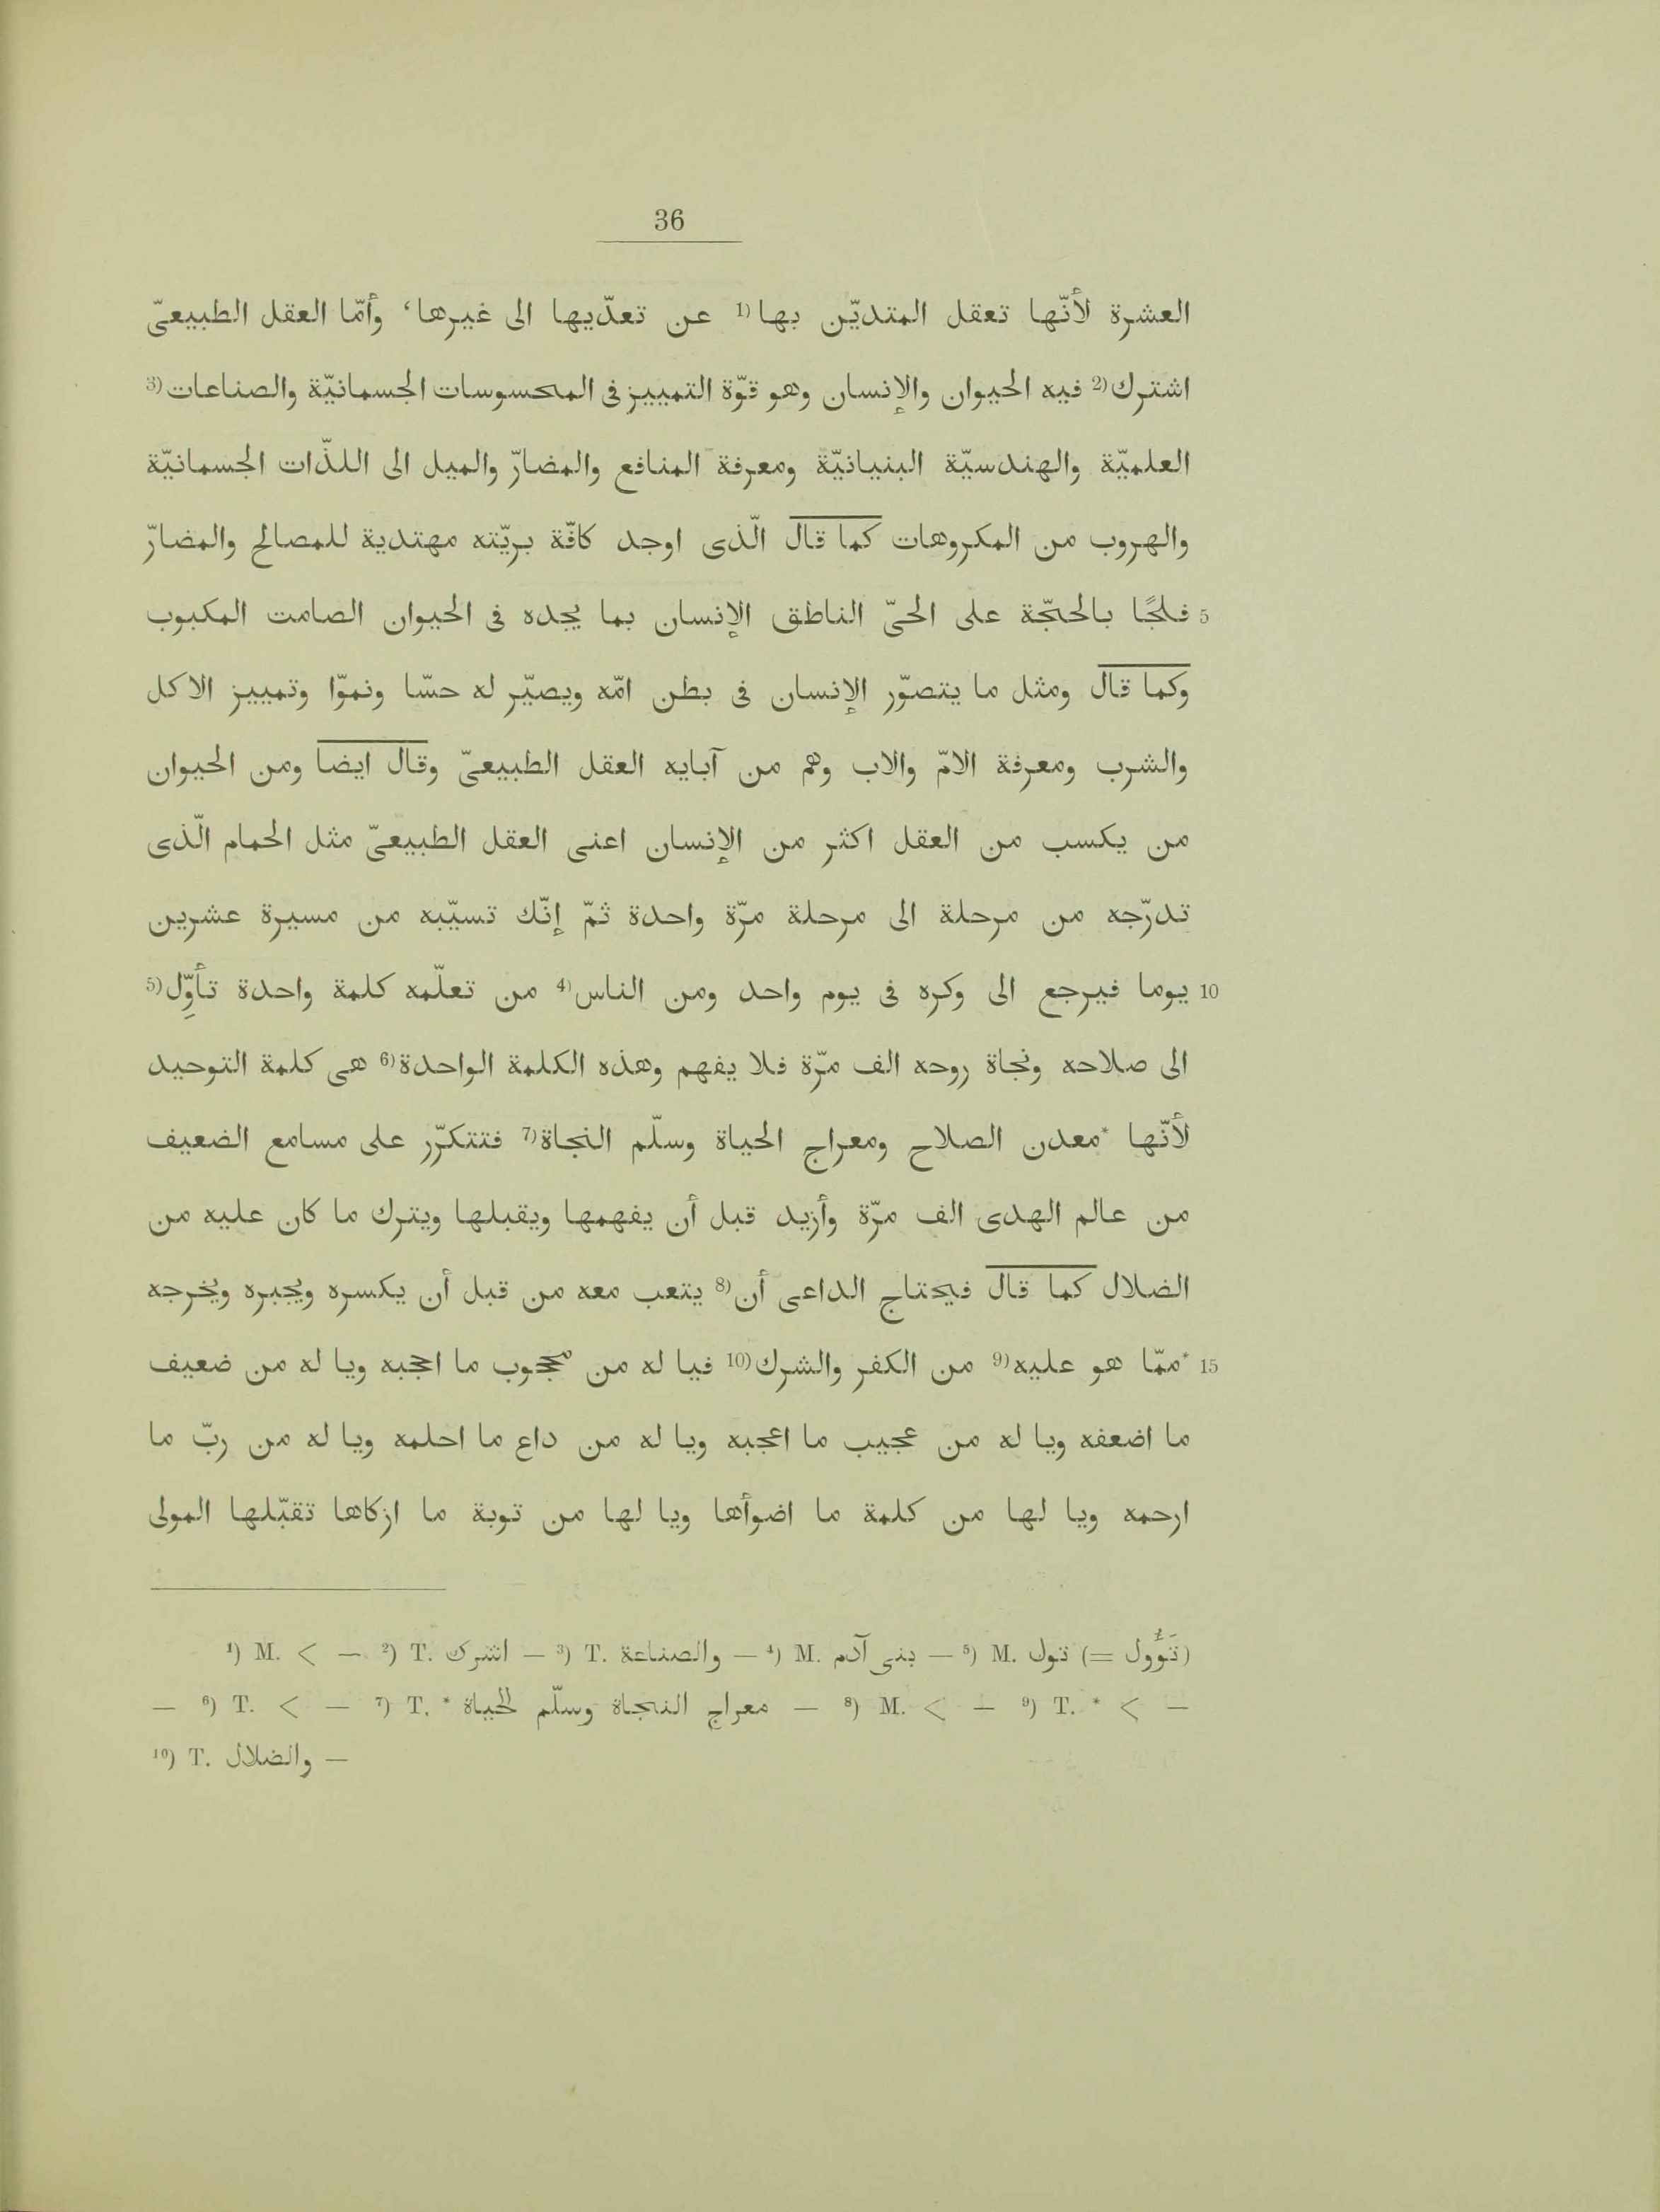 36
العشرة لأنّها تعقل المتديّن بها (1 عن تعدّيها الى غيرها، وأمّا العقل الطبيعىّ
اشترك (2 فيه الحيوان والإنسان وهو قوّة التمييز فى المحسوسات الجسمانيّة والصناعات (3
العلميّة والهندسيّة البنيانيّة ومعرفة المنافع والمضارّ والميل الى اللذّات الجسمانيّة
والهروب من المكروهات كما قال الّذى اوجد كافّة بريّته مهتدية للمصالح والمضارّ
5 فلجًا بالحجّة على الحىّ الناطق الإنسان بما يجده فى الحيوان الصامت المكبوب
وكما قال ومثل ما يتصوّر الإنسان فى بطن امّه ويصيّر له حسّا ونموّا وتمييز الاكل
والشرب ومعرفة الامّ والاب وهم من آبايه العقل الطبيعىّ وقال ايضا ومن الحيوان
من يكسب من العقل اكثر من الإنسان اعنى العقل الطبيعىّ مثل الحمام الّذى
تدرّجه من مرحلة الى مرحلة مرّة واحدة ثمّ إنّك تسيّبه من مسيرة عشرين
10 يوما فيرجع الى وكره فى يوم واحد ومن الناس (4 من تعلّمه كلمة واحدة تأوّل (5
الى صلاحه ونجاة روحه الف مرّة فلا يفهم وهذه الكلمة الواحدة (6 هى كلمة التوحيد
لأنّها *معدن الصلاح ومعراج الحياة وسلّم النجاة (7 فتتكرّر على مسامع الضعيف
من عالم الهدى الف مرّة وأزيد قبل أن يفهمها ويقبلها ويترك ما كان عليه من
الضلال كما قال فيحتاج الداعى أن (8 يتعب معه من قبل أن يكسره ويجبره ويخرجه
15 *ممّا هو عليه (9 من الكفر والشرك (10 فيا له من محجوب ما احجبه ويا له من ضعيف
ما اضعفه ويا له من عجيب ما اعجبه ويا له من داع ما احلمه ويا له من ربّ ما
ارحمه ويا لها من كلمة ما اضوأها ويا لها من توبة ما ازكاها تقبّلها المولى
1) M. < — 2) T. اشرك — 3) T. والصناعة — 4) M. بنى آدم — 5) M. تول (= تَؤُول)
— 6) T. < — 7) T. * معراج النجاة وسلّم الحياة — 8) M. < — 9) T. * < —
10) T. والضلال —